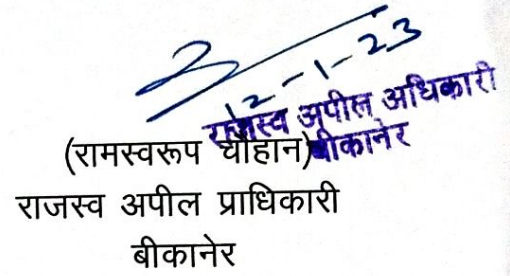 12-1-23
राजस्व अपील अधिकारी
बीकानेर
(रामस्वरूप चौहान)
राजस्व अपील प्राधिकारी
बीकानेर